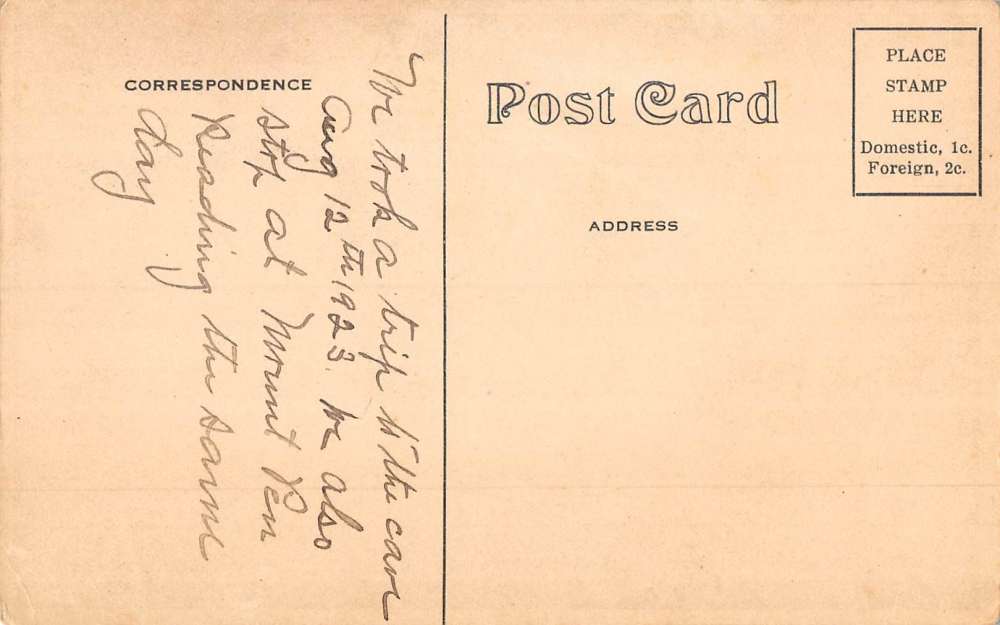 CORRESPONDENCE
We took a trip to the cave
Aug 12th 1923. We also
stop at Mount Pen
Reading the same
day
Post Card
ADDRESS
PLACE
STAMP
HERE
Domestic, 1c.
Foreign, 2c.